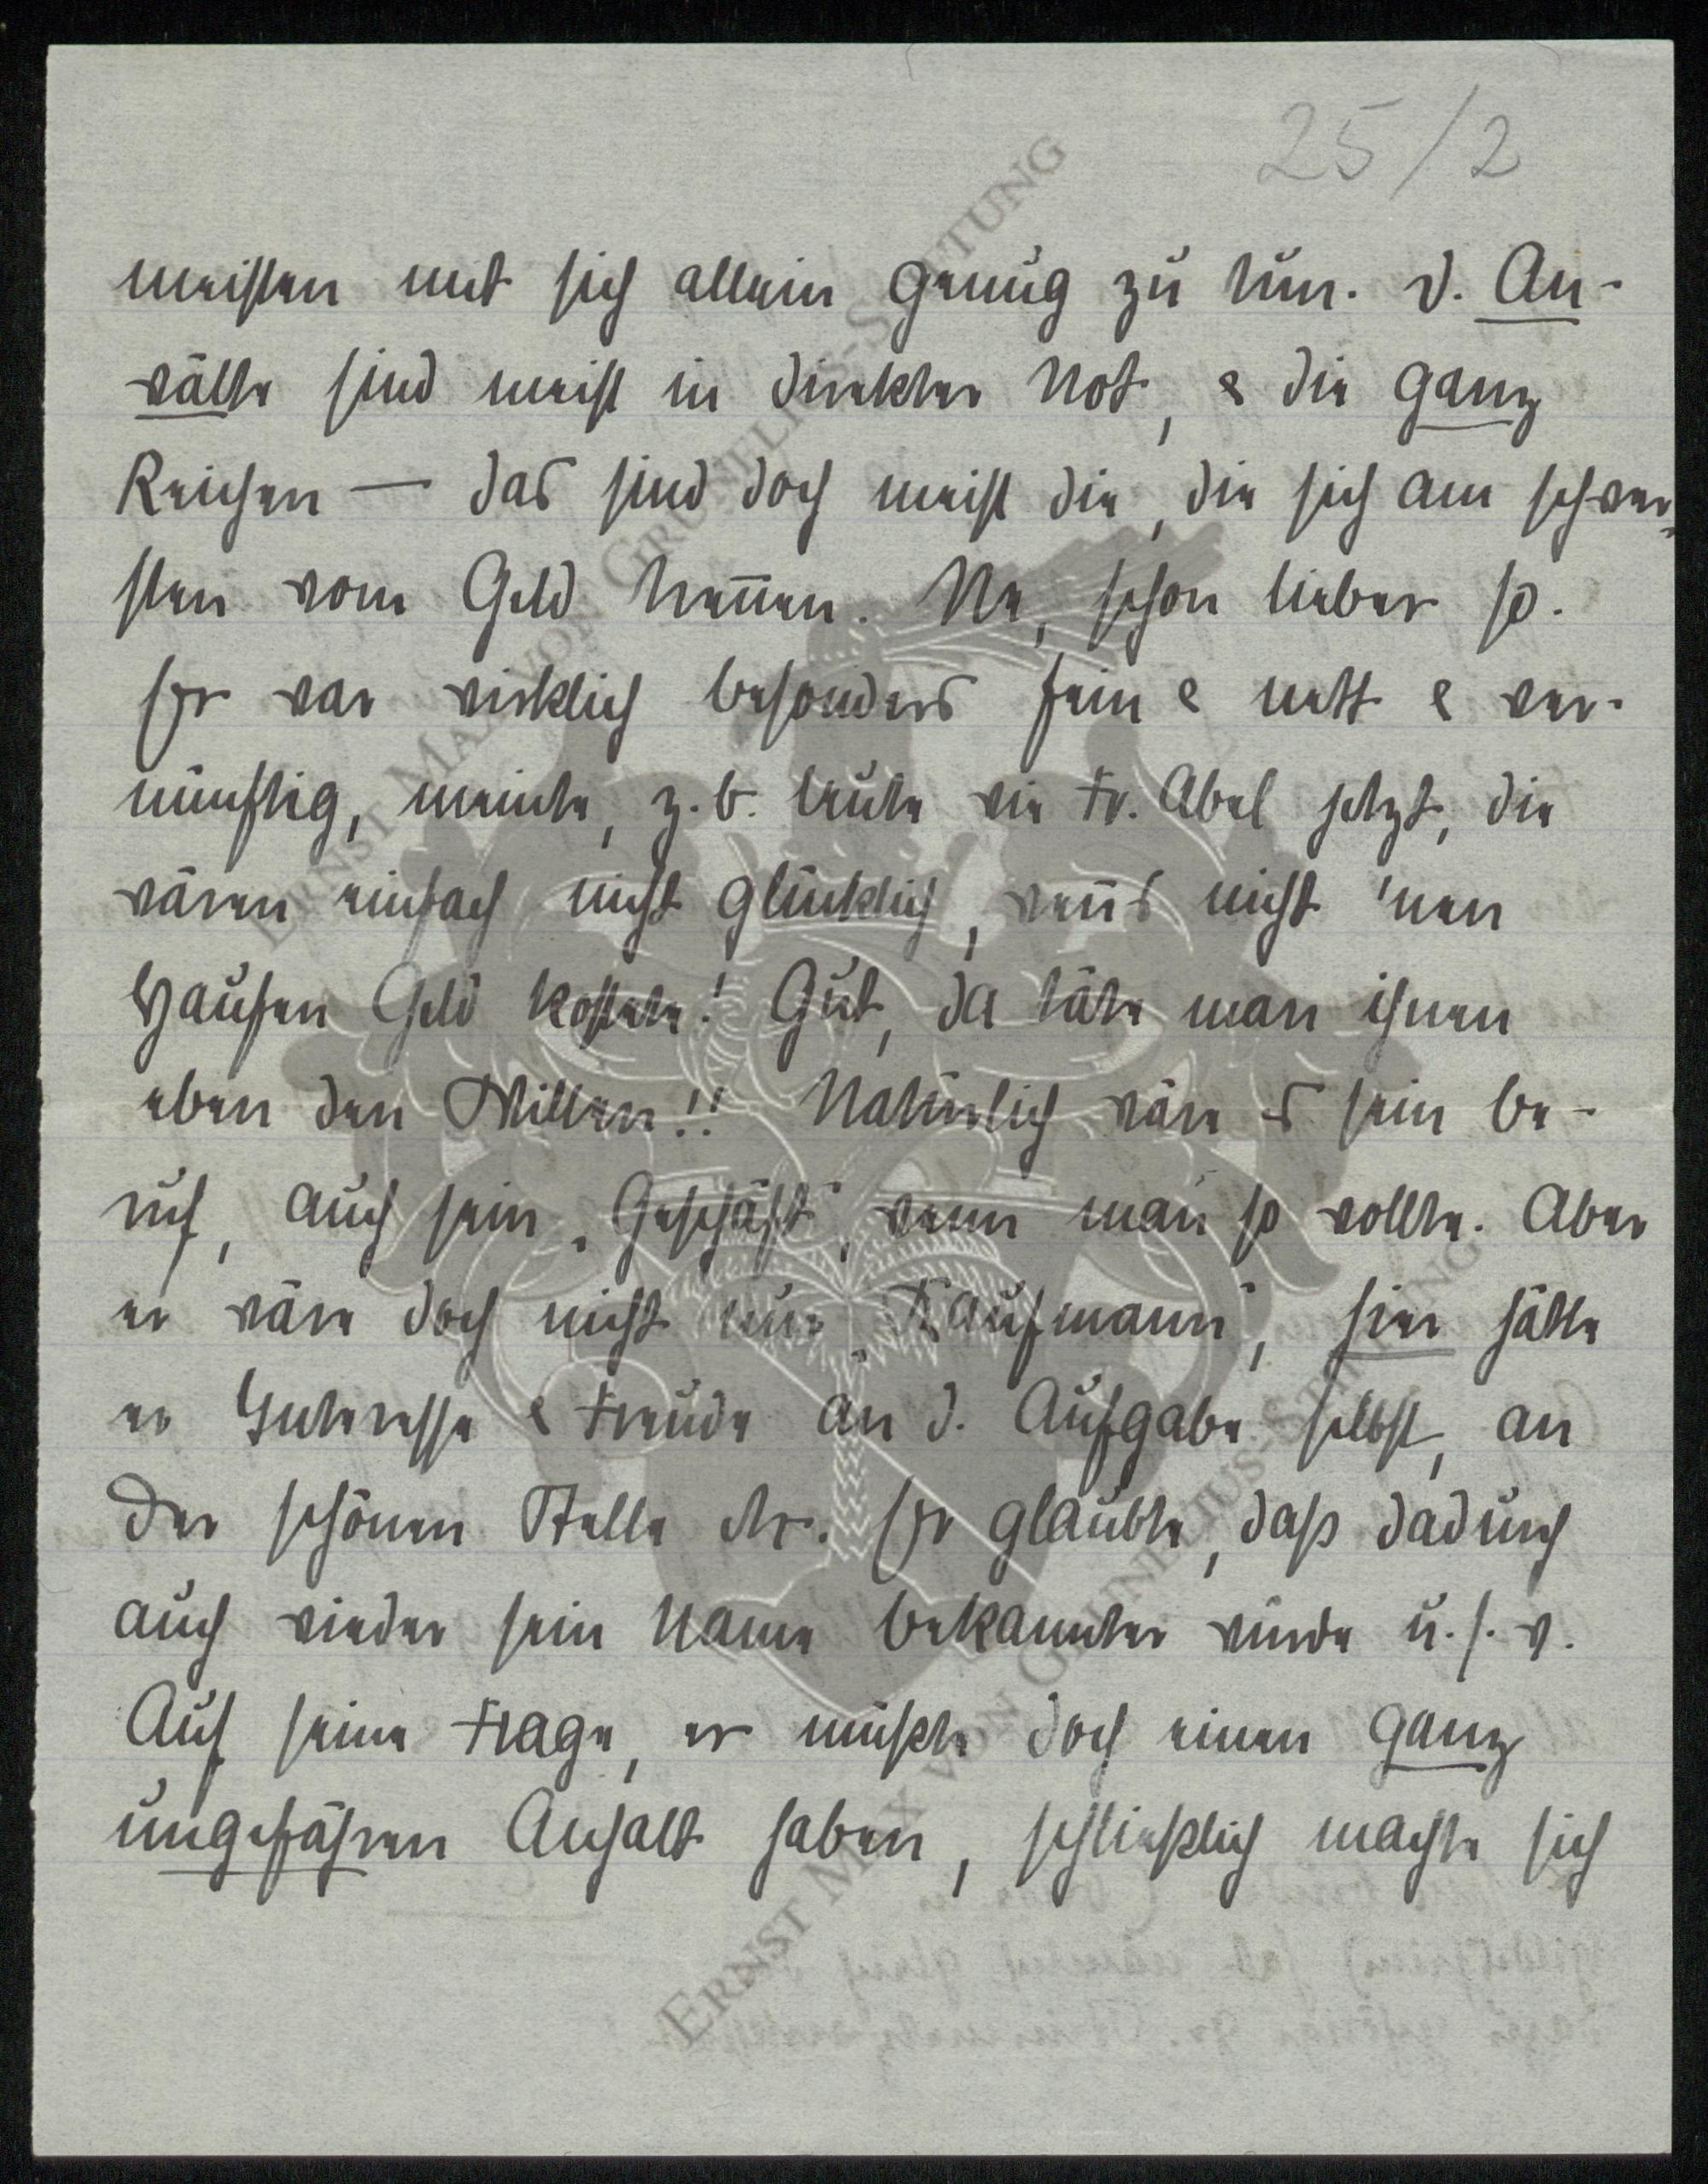 25/2
meisten mit sich allein genug zu tun. D. An-
wälte sind meist in direkter Not, & die ganz
Reichen — das sind doch meist die, die sich am schwer-
sten vom Geld trennen. Na, schon lieber so.
Er war wirklich besonders fein & nett & ver-
nünftig, meinte, z. b. Leute wie Fr. Abel jetzt, die
wären einfach nicht glücklich, wenns nicht 'nen
Haufen Geld kostete! Gut, da täte man ihnen
eben den Willen!! Natürlich wäre es sein Be-
ruf, auch sein „Geschäft", wenn man so wollte. Aber
er wäre doch nicht nur „Kaufmann", hier hätte
er Interesse & Freude an d. Aufgabe selbst, an
der schönen Stelle etc. Er glaubte, dass dadurch
auch wieder sein Name bekannter würde u. s. w.
Auf seine Frage, er müsste doch einen ganz
ungefähren Anhalt haben, schliesslich machte sich
ERNST MAX VON GRUNELIUS-STIFTUNG
ERNST MAX VON GRUNELIUS-STIFTUNG